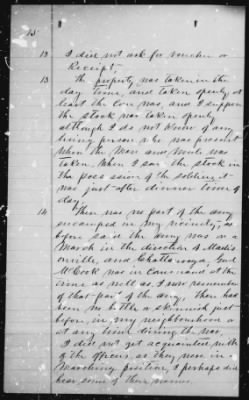 13
12 I did not ask for voucher or
Receipt,
13 The property was taken in the
day time, and taken openly, at
least the Cow was, and I suppose
the stock was taken openly
although I do not know of any
living person who was present
when the Mare and Mule was
taken. When I saw the stock in
the possession of the soldiers it
was just after dinner time of
day.
14 There was no part of the army
encamped in my vicinity, as
before said the army was on a
March in the direction of
and Chattanooga, Genl
McCook was in command of the
army as well as I now remember
of that part of the army, there had
been no battle or skirmish just
before, in my neighbourhood or
at any time during the war,
I did not get acquainted with
of the officers, as they were in a
Marching position, I perhaps did
hear some of their names.